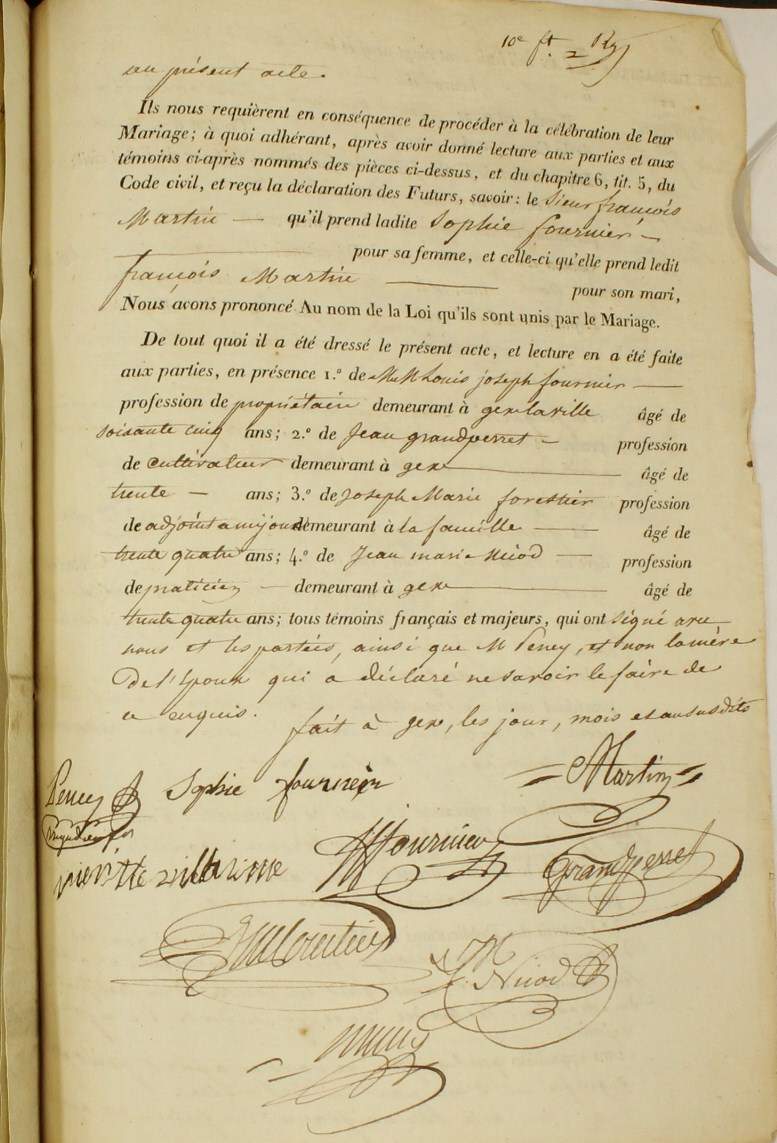 10e ft. 2
au présent acte.
Ils nous requièrent en conséquence de procéder à la célébration de leur
Mariage; à quoi adhérant, après avoir donné lecture aux parties et aux
témoins ci-après nommés des pièces ci-dessus, et du chapitre 6, tit. 5, du
Code civil, et reçu la déclaration des Futurs, savoir: le Sieur françois
Martin — qu'il prend ladite Sophie fournier —
pour sa femme, et celle-ci qu'elle prend ledit
françois Martin — pour son mari,
Nous avons prononcé Au nom de la Loi qu'ils sont unis par le Mariage.
De tout quoi il a été dressé le présent acte, et lecture en a été faite
aux parties, en présence 1.º de Louis joseph fournier —
profession de propriétaire demeurant à gex la ville âgé de
soixante cinq ans; 2.º de Jean grandperret — profession
de cultivateur demeurant à gex — âgé de
trente — ans; 3.º de Joseph Marie forestier profession
de adjoint demeurant à la — âgé de
trente quatre ans; 4.º de Jean marie Nicod — profession
de praticien — demeurant à gex — âgé de
trente quatre ans; tous témoins français et majeurs, qui ont signé avec
nous et les parties, ainsi que M Peney, et non la mère
De l'Epoux qui a déclaré ne savoir le faire de
ce enquis. fait à gex, les jour, mois et an susdits
Peney Sophie fournier Martin
fournier Grandperret
Nicod